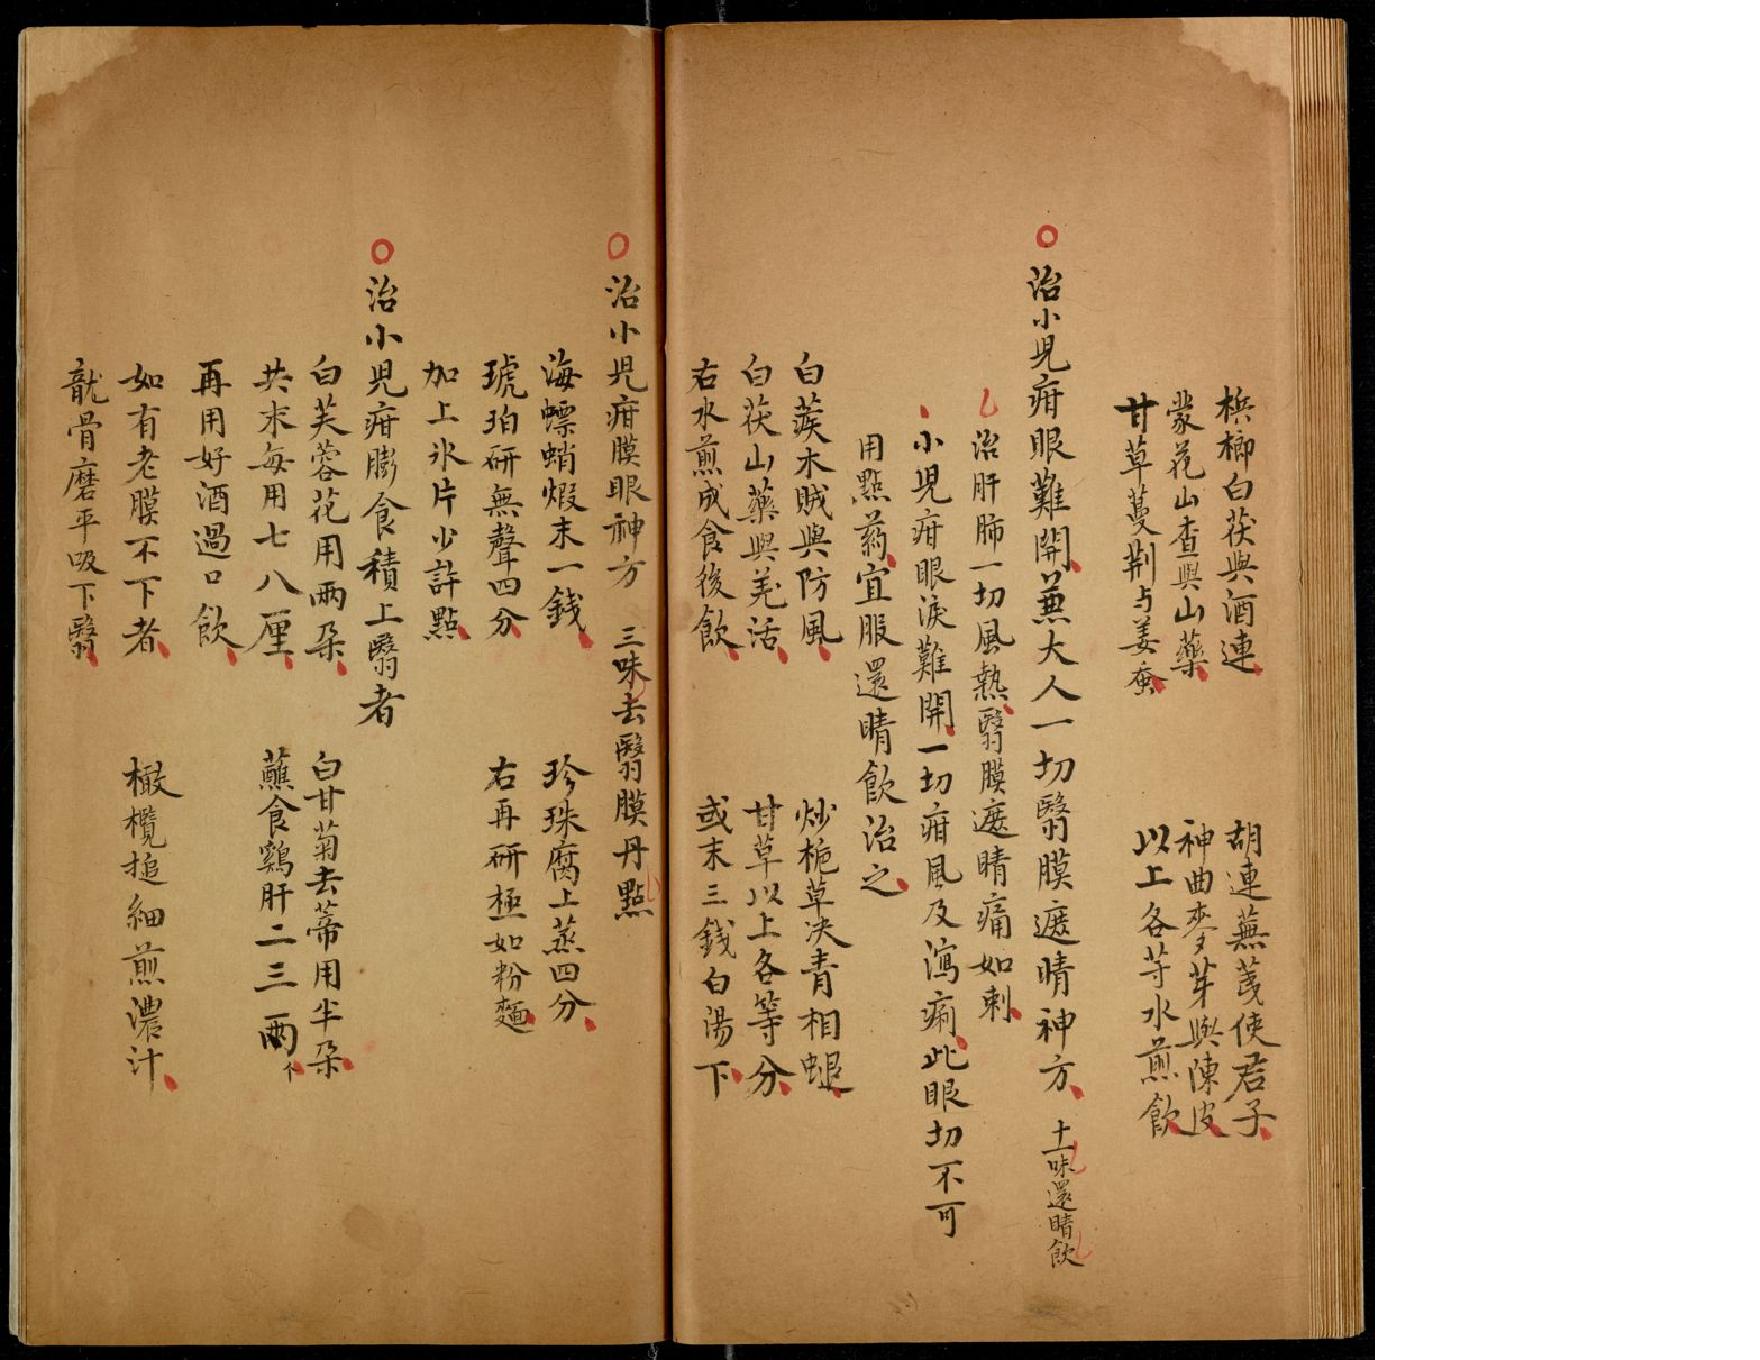 梹榔白茯與酒連　胡連蕪荑使君子
蒙花山查與山藥　神曲麥芽與陳皮
甘草蔓荆与姜蚕　以上各等水煎飲
治小児疳眼難開兼大人一切翳膜遮睛神方　十一味還睛飲
治肝肺一切風熱翳膜遮睛痛如刺
小児疳眼淚難開一切疳風及瀉痢此眼切不可
用點葯宜服還睛飲治之
白蒺木賊與防風　炒梔草决青相蜕
白茯山藥與羌活　甘草以上各等分
右水煎成食後飲　或末三錢白湯下
治小児疳膜眼神方　三味去翳膜丹點
海螵蛸煆末一錢　珍珠腐上蒸四分
琥珀研無聲四分　右再研極如粉麵
加上氷片少許點
治小児疳膨食積上翳者
白芙蓉花用兩朶　白甘菊去蒂用半朶
共末每用七八厘　蘸食鷄肝二三兩下
再用好酒過口飲
如有老膜不下者　橄欖搥細煎濃汁
龍骨磨平吸下翳